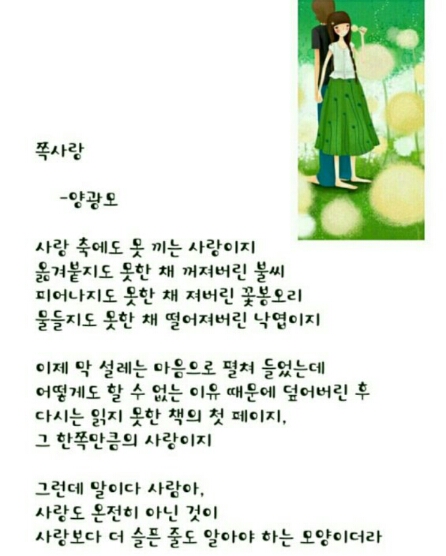 쪽사랑
-양광모
사랑 축에도 못 끼는 사랑이지
옮겨붙지도 못한 채 꺼져버린 불씨
피어나지도 못한 채 져버린 꽃봉오리
물들지도 못한 채 떨어져버린 낙엽이지
이제 막 설레는 마음으로 펼쳐 들었는데
어떻게도 할 수 없는 이유 때문에 덮어버린 후
다시는 읽지 못한 책의 첫 페이지,
그 한쪽만큼의 사랑이지
그런데 말이다 사람아,
사랑도 온전히 아닌 것이
사랑보다 더 슬픈 줄도 알아야 하는 모양이더라